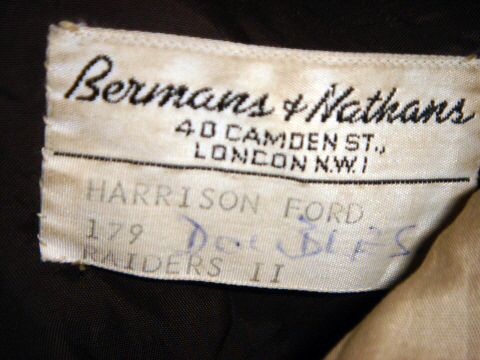 Bermans & Nathans
40 CAMDEN ST.,
LONDON N.W.1
HARRISON FORD
179 DOUBLES
RAIDERS II